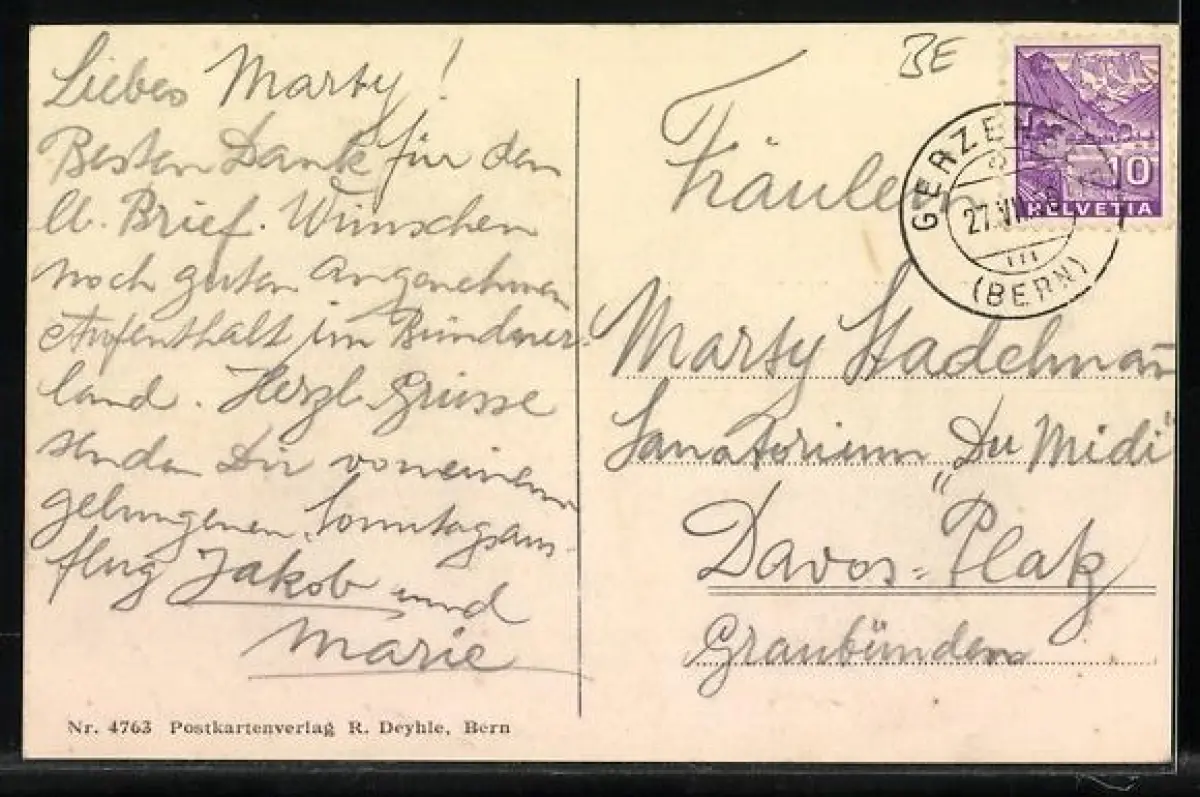 Liebes Marty!
Besten Dank für den
lb. Brief. Wünschen
noch guten angenehmen
Aufenthalt im Bündner-
land. Herzl. Grüsse
senden Dir von einem
gelungenen Sonntagsaus-
flug Jakob und
Marie
Nr. 4763 Postkartenverlag R. Deyhle, Bern
BE
10
HELVETIA
27.VII
(BERN)
Fräulein
Marty Stadelmann
Sanatorium „Du Midi"
Davos-Platz
Graubünden